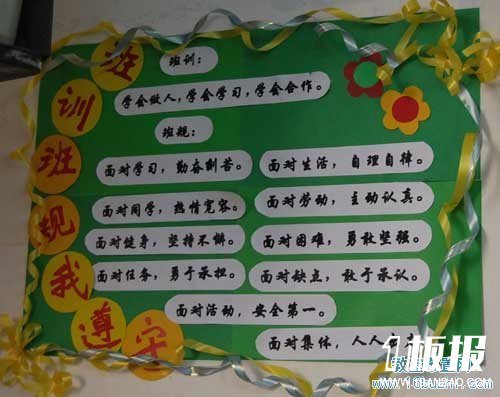 班训班规我遵守
班训:
学会做人,学会学习,学会合作。
班规:
面对学习,勤奋刻苦。
面对生活,自理自律。
面对同学,热情宽容。
面对劳动,主动认真。
面对健身,坚持不懈。
面对困难,勇敢坚强。
面对任务,勇于承担。
面对缺点,敢于承认。
面对活动,安全第一。
面对集体,人人
1板报